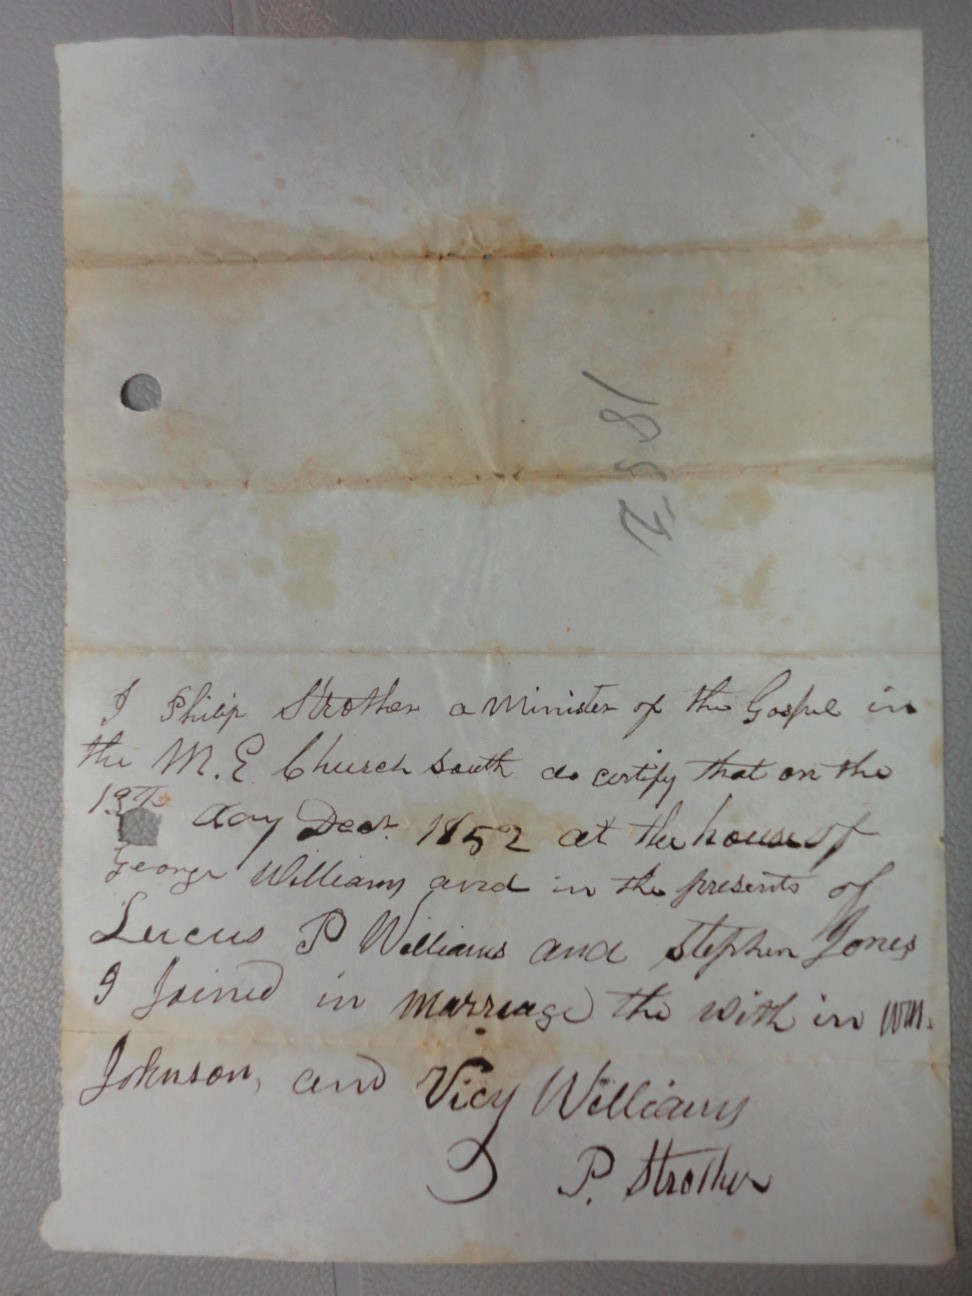 1852
I Philip Strother a Minister of the Gospel in
the M. E Church South do certify that on the
19th day Decr. 1852 at the house of
George Williams and in the presents of
Lucus P Williams and Stephen Jones
I Joined in Marriage the with in Wm.
Johnson, and Vicy Williams
P. Strother